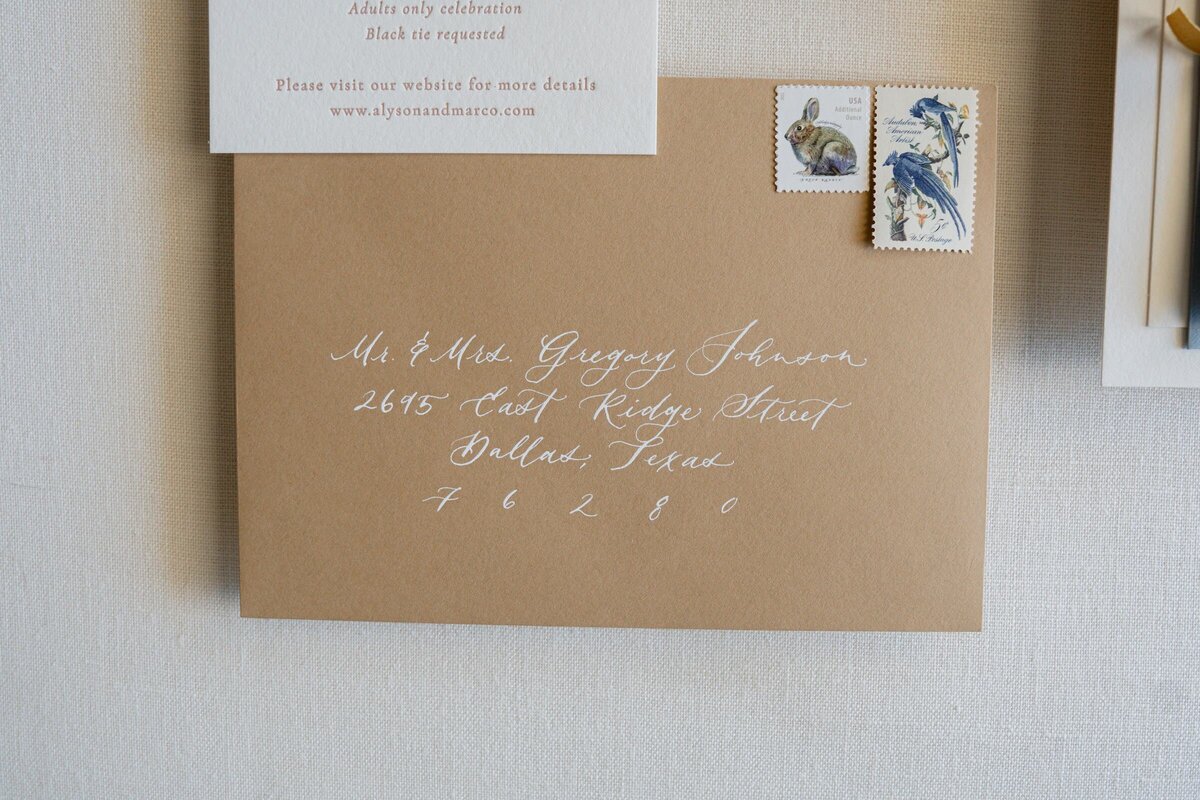 Adults only celebration
Black tie requested
Please visit our website for more details
www.alysonandmarco.com
USA
Additional
Ounce
Audubon
American
Artist
5¢
U.S. Postage
Mr. & Mrs. Gregory Johnson
2695 East Ridge Street
Dallas, Texas
7 6 2 8 0